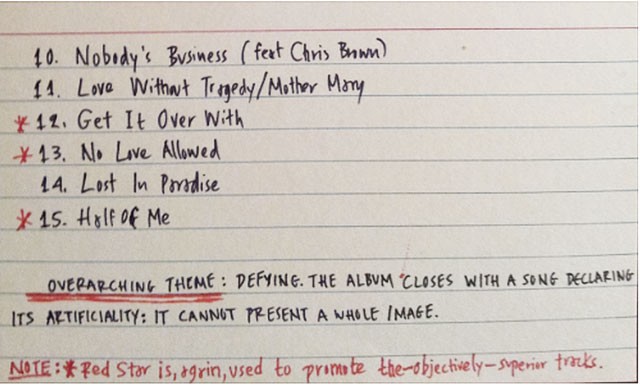 10. Nobody's Business (feat Chris Brown)
11. Love Without Tragedy/Mother Mary
* 12. Get It Over With
* 13. No Love Allowed
14. Lost In Paradise
* 15. Half Of Me
OVERARCHING THEME: DEFYING. THE ALBUM CLOSES WITH A SONG DECLARING
ITS ARTIFICIALITY: IT CANNOT PRESENT A WHOLE IMAGE.
NOTE: * Red Star is, again, used to promote the-objectively-superior tracks.